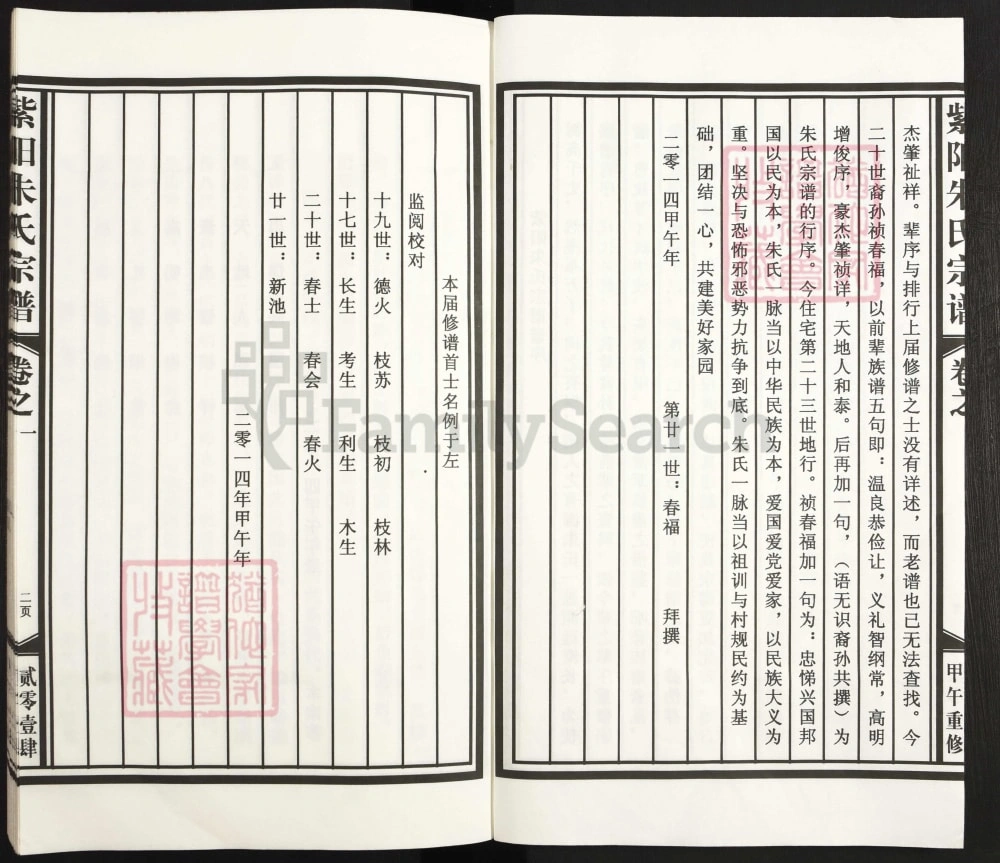 紫阳朱氏宗谱
卷之
甲午重修
杰肇祉祥。辈序与排行上届修谱之士没有详述，而老谱也已无法查找。今
二十世裔孙祯春福，以前辈族谱五句即：温良恭俭让，义礼智纲常，高明
增俊序，豪杰肇祯详，天地人和泰。后再加一句，（语无识裔孙共撰）为
朱氏宗谱的行序。今住宅第二十三世地行。祯春福加一句为：忠悌兴国邦
国以民为本，朱氏一脉当以中华民族为本，爱国爱党爱家，以民族大义为
重。坚决与恐怖邪恶势力抗争到底。朱氏一脉当以祖训与村规民约为基
础，团结一心，共建美好家园
二零一四甲午年 第廿一世：春福 拜撰
本届修谱首士名例于左
监阅校对
十九世：德火 枝苏 枝初 枝林
十七世：长生 考生 利生 木生
二十世：春士 春会 春火
廿一世：新池
二零一四年甲午年
紫阳朱氏宗谱
卷之一
二页
贰零壹肆
FamilySearch